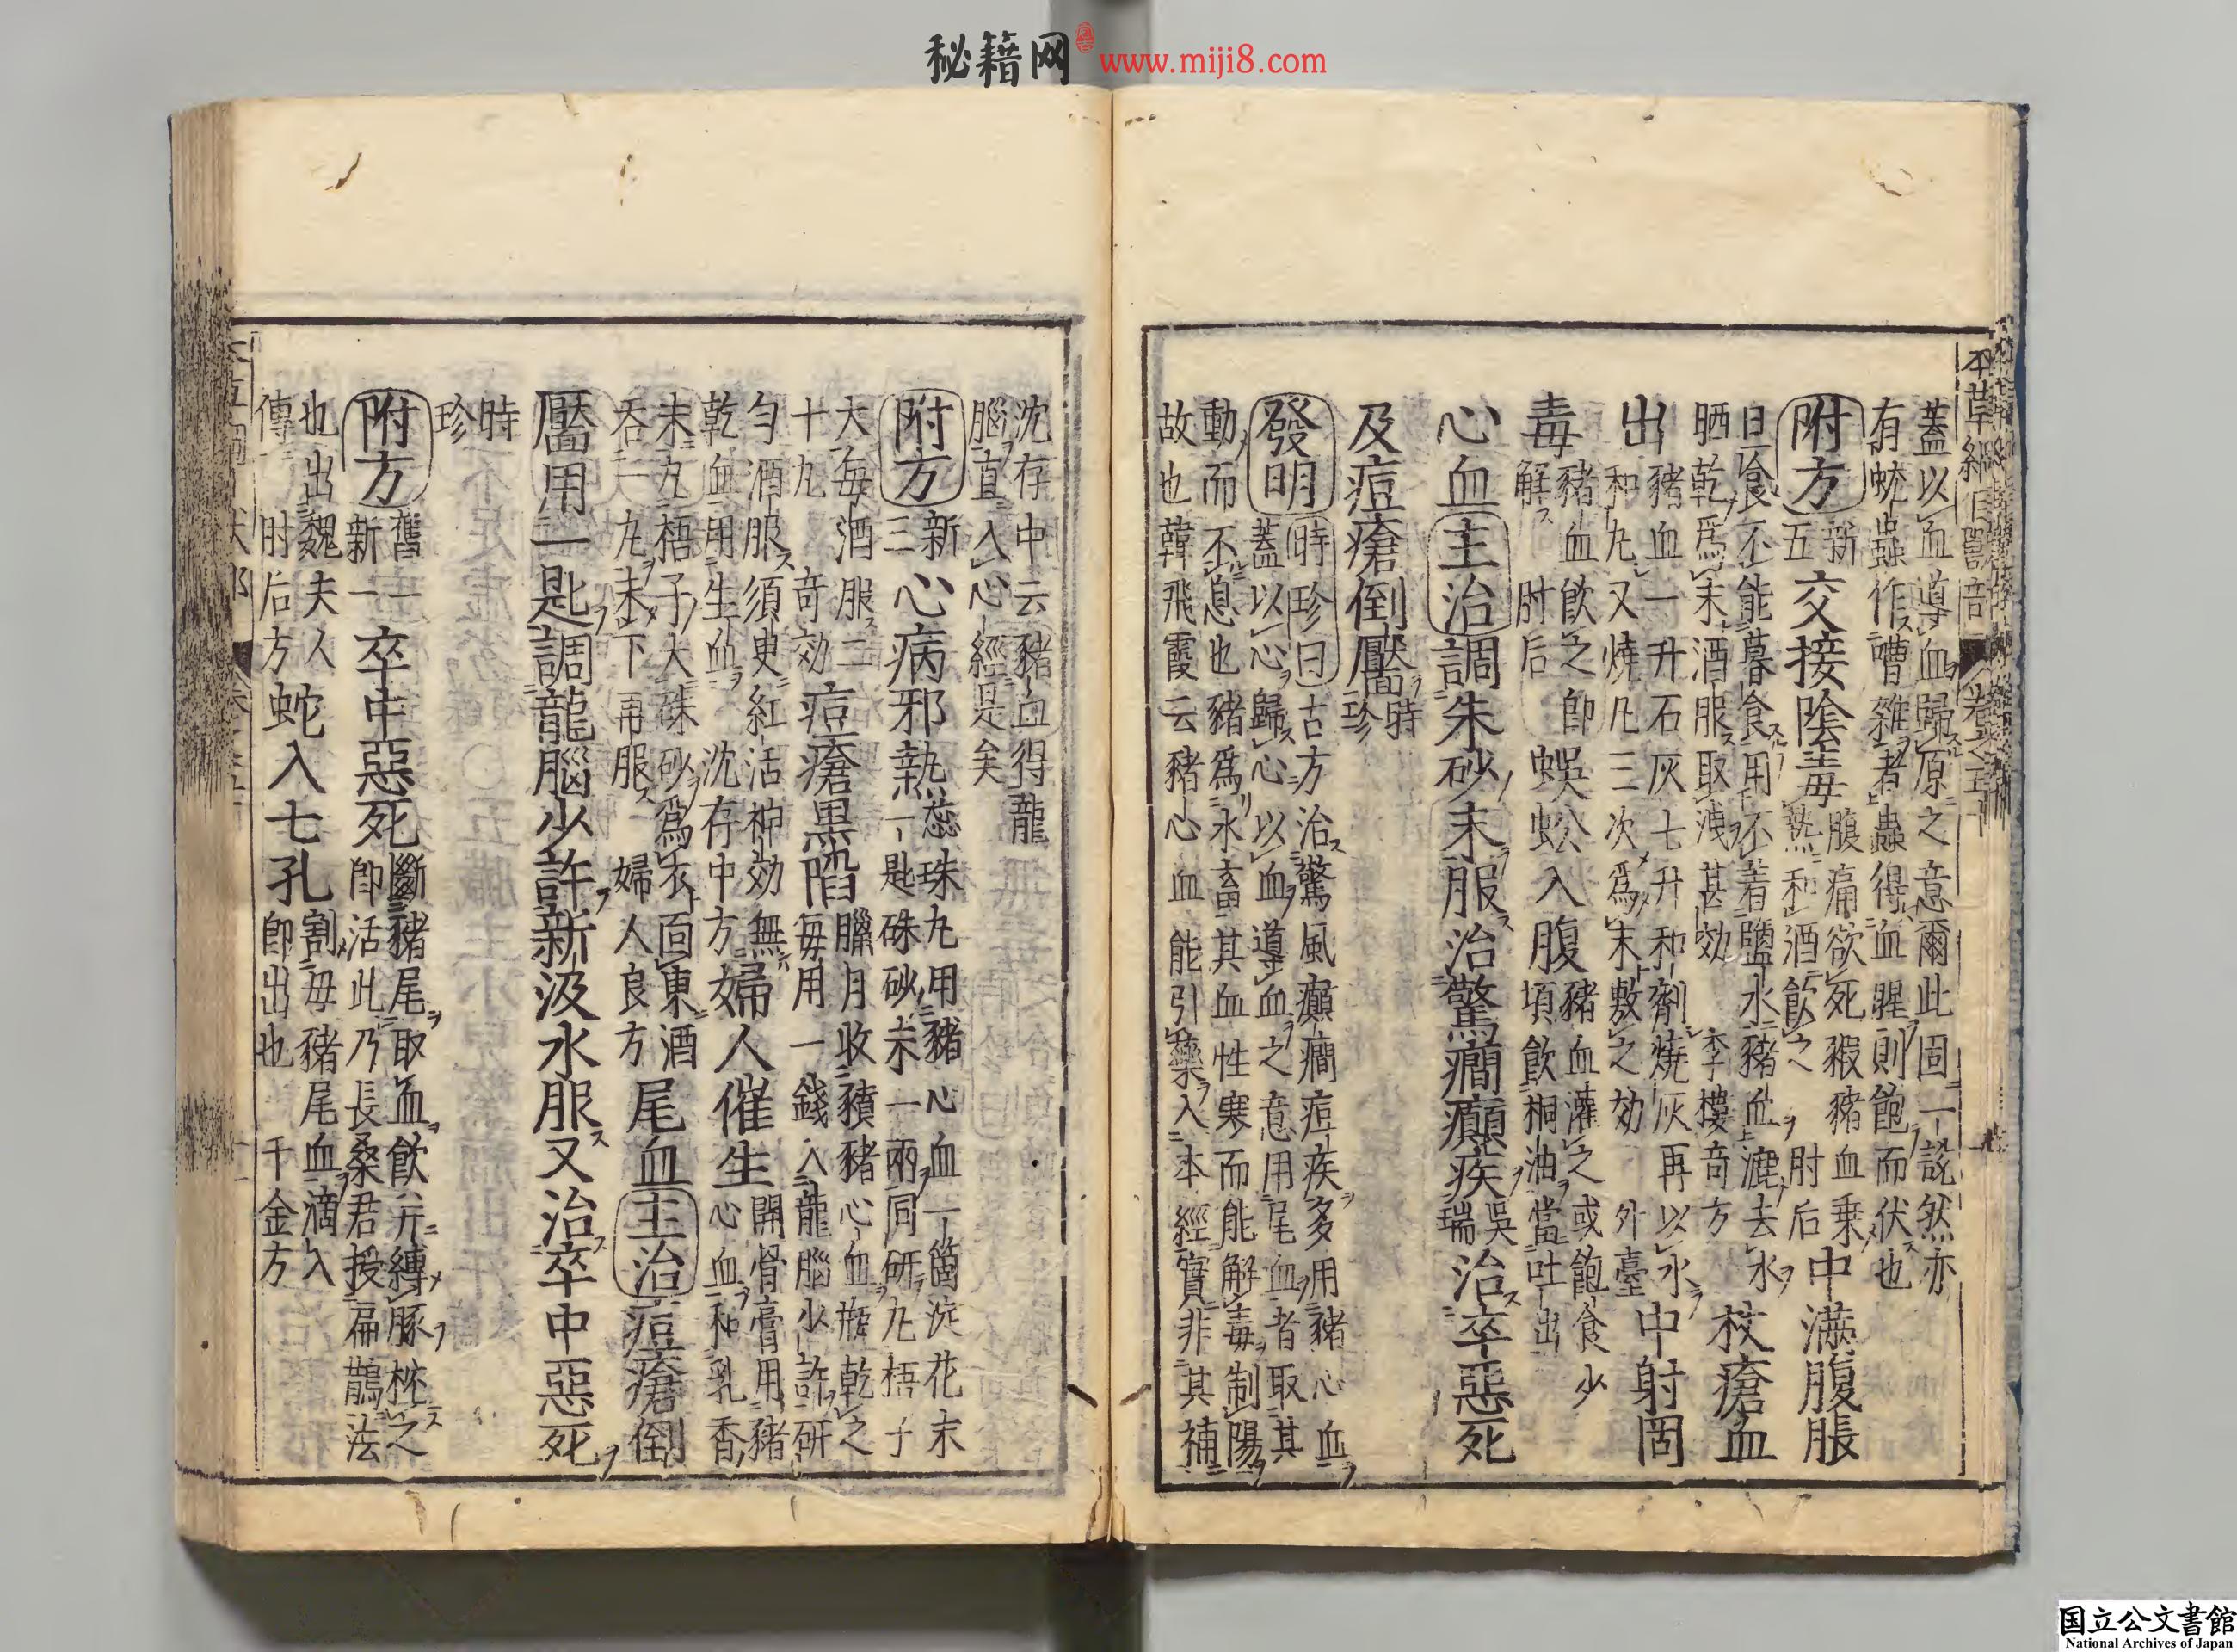 秘籍网 www.miji8.com
本草綱目獸部 卷之五十
蓋以血導血歸原之意爾此固一說然亦
有蛟蟲作嘈雜者蟲得血腥則飽而伏也
附方 新五 交接陰毒 腹痛欲死豭豬血乘熱和酒飲之 肘后 中滿腹脹
旦食不能暮食用不着鹽水豬血漉去水
晒乾爲末酒服取洩甚効 李樓奇方 杖瘡血
出 豬血一升石灰七升和劑燒灰再以水和丸又燒凡三次爲末敷之効 外臺 中射罔
毒 豬血飲之卽解 肘后 蜈蚣入腹 豬血灌之或飽食少頃飲桐油當吐出
心血 主治 調朱砂末服治驚癇癲疾 吳瑞 治卒惡死
及痘瘡倒靨 時珍
發明 時珍曰 古方治驚風癲癇痘疾多用豬心血
蓋以心歸心以血導血之意用尾血者取其
動而不息也豬爲水畜其血性寒而能解毒制陽
故也韓飛霞云豬心血能引藥入本經實非其補
沈存中云豬血得龍
腦直入心經是矣
附方 新三 心病邪熱 蕊珠丸用豬心血一箇淀花末一匙硃砂末一兩同研丸梧子
大每酒服二十丸 奇効 痘瘡黒陷 臘月收豶豬心血瓶乾之每用一錢入龍腦少許研
勻酒服須臾紅活神効無乾血用生血 沈存中方 婦人催生 開骨膏用豬心血和乳香
末丸梧子大硃砂爲衣面東酒吞一丸未下再服 婦人良方 尾血 主治 痘瘡倒
靨用一匙調龍腦少許新汲水服又治卒中惡死
時珍
附方 舊一新一 卒中惡死 斷豬尾取血飲并縛豚枕之卽活此乃長桑君授扁鵲法
也出魏夫人傳 肘后方 蛇入七孔 割母豬尾血滴入卽出也 千金方
国立公文書館
National Archives of Japan